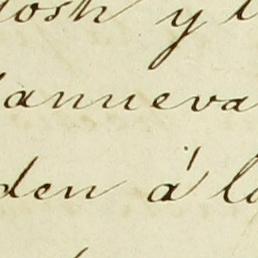 dosh y l
annueva
den á la